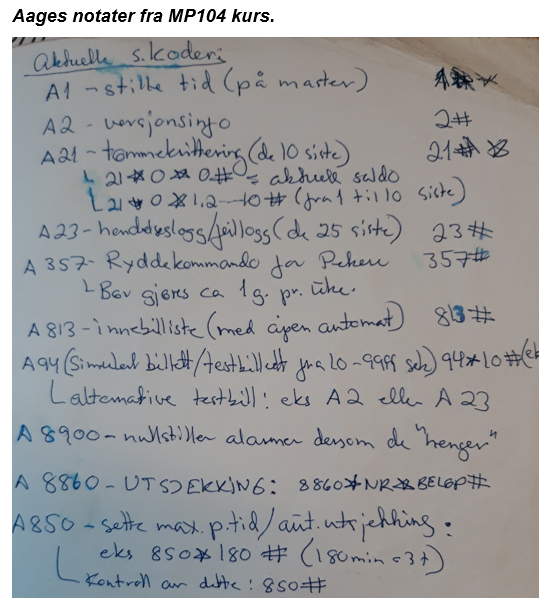 Aages notater fra MP104 kurs.
Aktuelle s.koder:
A1 - stille tid (på master) 1# *
A2 - versjonsinfo 2#
A21 - tømmekvittering (de 10 siste) 21#
└ 21*0*0# = aktuell saldo
└ 21*0*1,2--10# (fra 1 til 10 siste)
A23 - hendelseslogg/feillogg (de 25 siste) 23#
A 357 - Ryddekommando for Peken 357#
└ Bør gjøres ca 1 g. pr. uke.
A 813 - innebilliste (med åpen automat) 813#
A94 (Simulert billett/testbillett fra 10-9999 sek) 94*10# (ek
└ alternative testbill: eks A2 eller A 23
A 8900 - nullstiller alarmer dersom de "henger"
A 8860 - UTSJEKKING: 8860*NR*BELØP#
A850 - sette max.p.tid/aut.utsjekking:
eks 850*180 # (180min = 3t)
└ Kontroll av dette: 850#